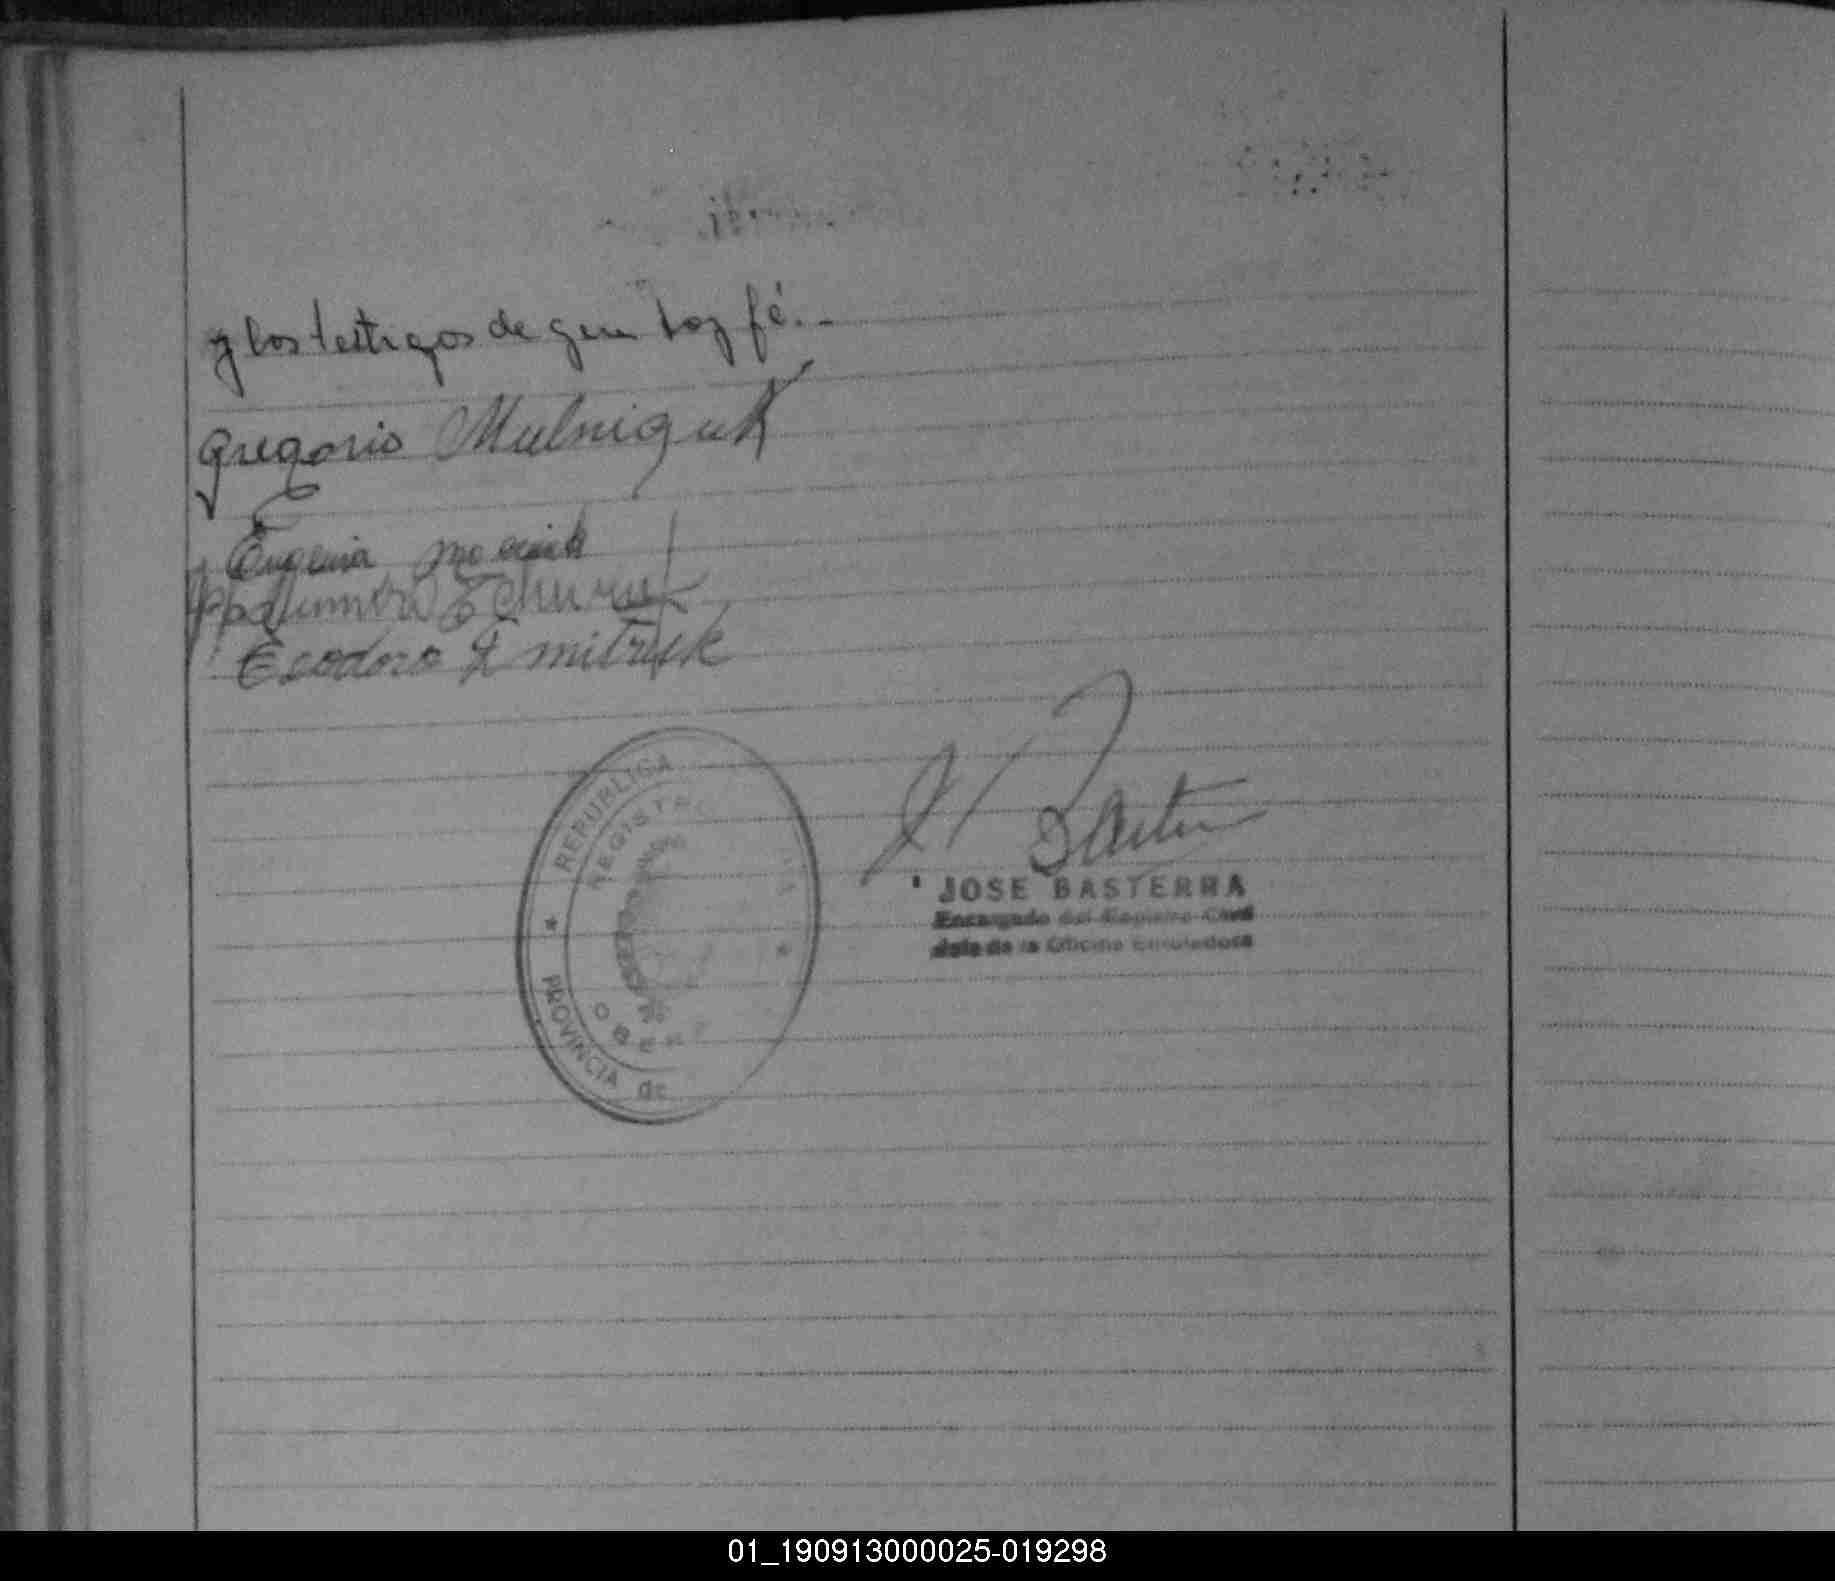 y los testigos de que doy fé.-
Gregorio Mulniquk
Eugenia
Teodoro Dmitruk
REPUBLICA
REGISTRO
OBERA
PROVINCIA de
JOSE BASTERRA
Encargado del Registro Civil
Jefe de la Oficina Enroladora
01_190913000025-019298